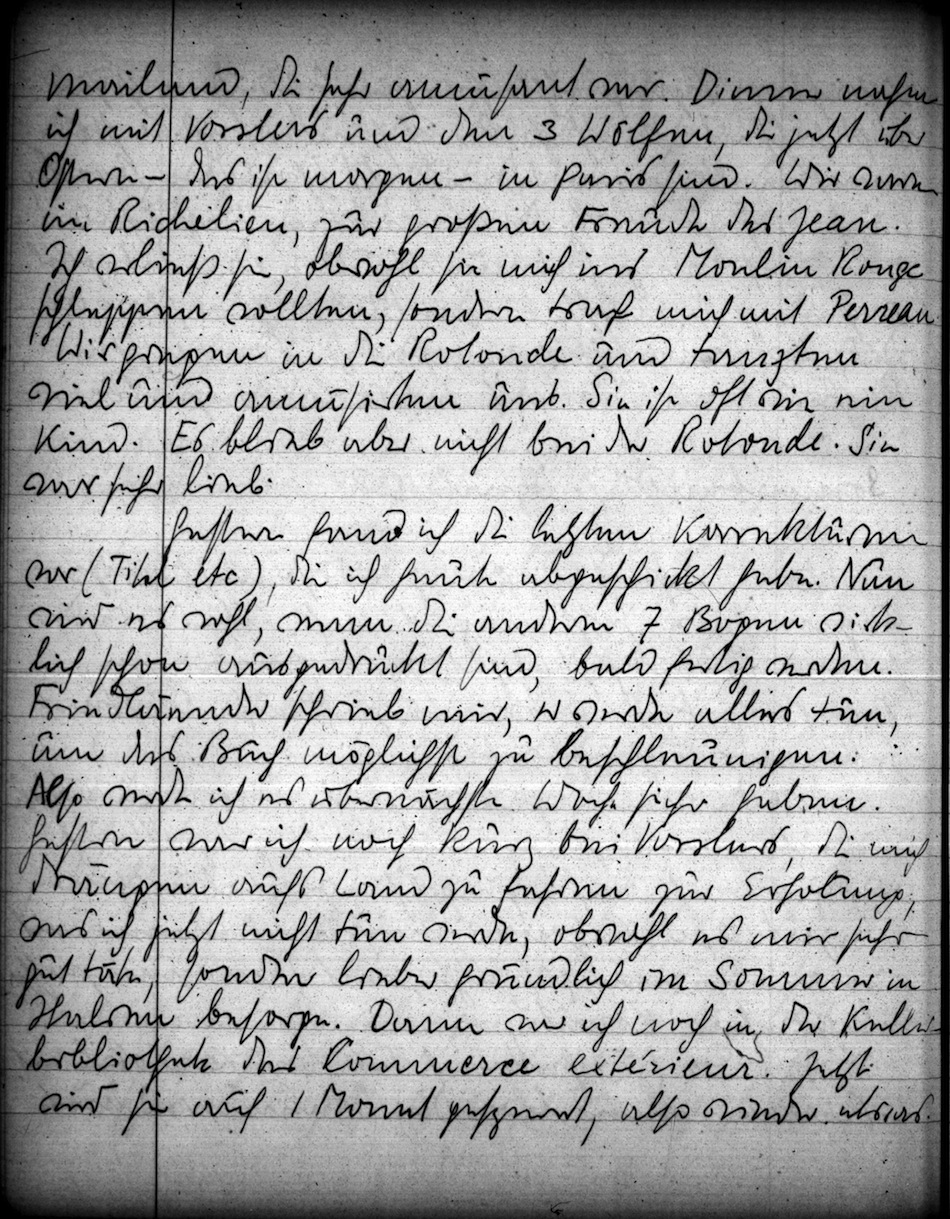 Mailand, die sehr amüsant war. Dinner nahm
ich mit Vorslers und den 3 Wölfen, die jetzt über
Ostern – das ist morgen – in Paris sind. Wir waren
im Richelieu, zur großen Freude des Jean.
Ich verließ sie, obwohl sie mich ins Moulin Rouge
schleppen wollten, sondern traf mich mit Perreau
Wir gingen in die Rotonde und tanzten
viel und amüsierten uns. Sie ist oft wie ein
Kind. Es blieb aber nicht bei der Rotonde. Sie
war sehr lieb.
Gestern fand ich die letzten Korrekturen
vor (Titel etc), die ich heute abgeschickt habe. Nun
wird es wohl, wenn die andern 7 Bogen wirk-
lich schon ausgedruckt sind, bald fertig werden.
Friedlaender schrieb mir, er werde alles tun,
um das Buch möglichst zu beschleunigen.
Also werde ich es übernächste Woche sicher haben.
Gestern war ich noch kurz bei Vorslers, die mich
drängen aufs Land zu fahren zur Erholung,
was ich jetzt nicht tun werde, obwohl es mir sehr
gut täte, sondern lieber gründlich im Sommer in
Italien besorge. Dann war ich noch in der
bibliothek des Commerce extérieur. Jetzt
sind sie auf 1 Monat gesperrt, also wieder etwas.